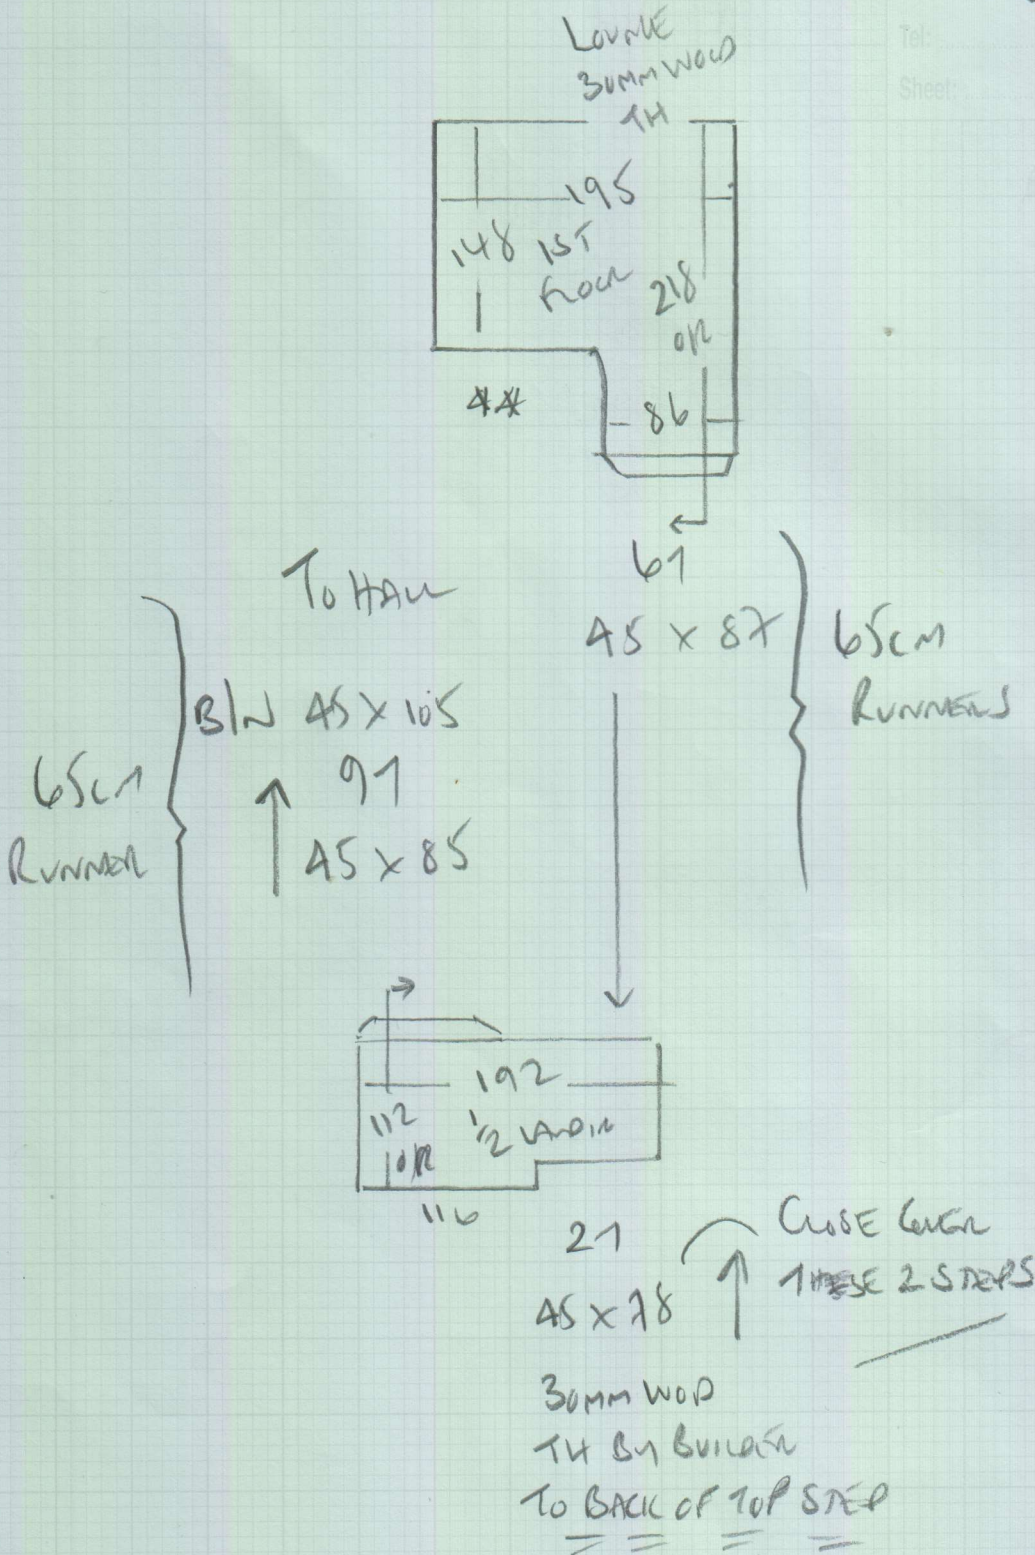 Tel:
Sheet:
LOUNGE
30MM WOOD
TH
195
148 1ST
FLOOR
218
O/R
86
61
TO HALL
45 X 87
65CM
RUNNERS
B/N 45 X 105
91
65CM
RUNNER
45 X 85
192
112
O/R
1/2 LANDIN
116
21
CLOSE COVER
THESE 2 STEPS
45 X 78
30MM WOD
TH BY BUILDER
TO BACK OF TOP STEP